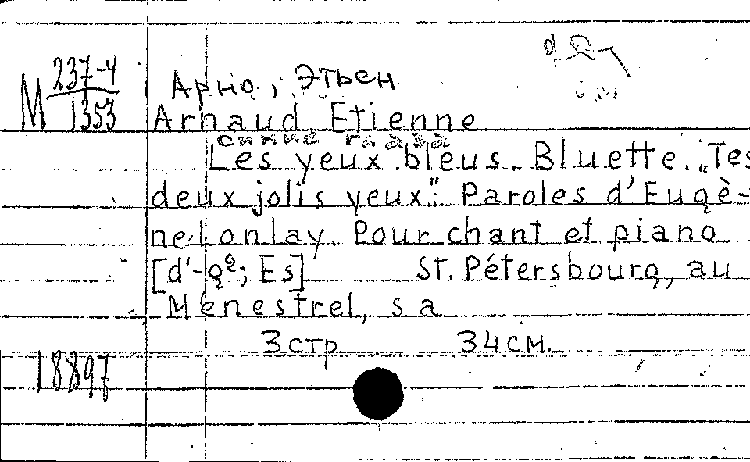 М 237-4
1353
Арно, Этьен
Arnaud Etienne
синие глаза
Les yeux bleus. Bluette. „Tes
deux jolis yeux". Paroles d'Eugè-
ne Lonlay. Pour chant et piano
[d'-g²; Es] St. Pétersbourg, au
Ménestrel, s a
3 стр 34 см.
18897